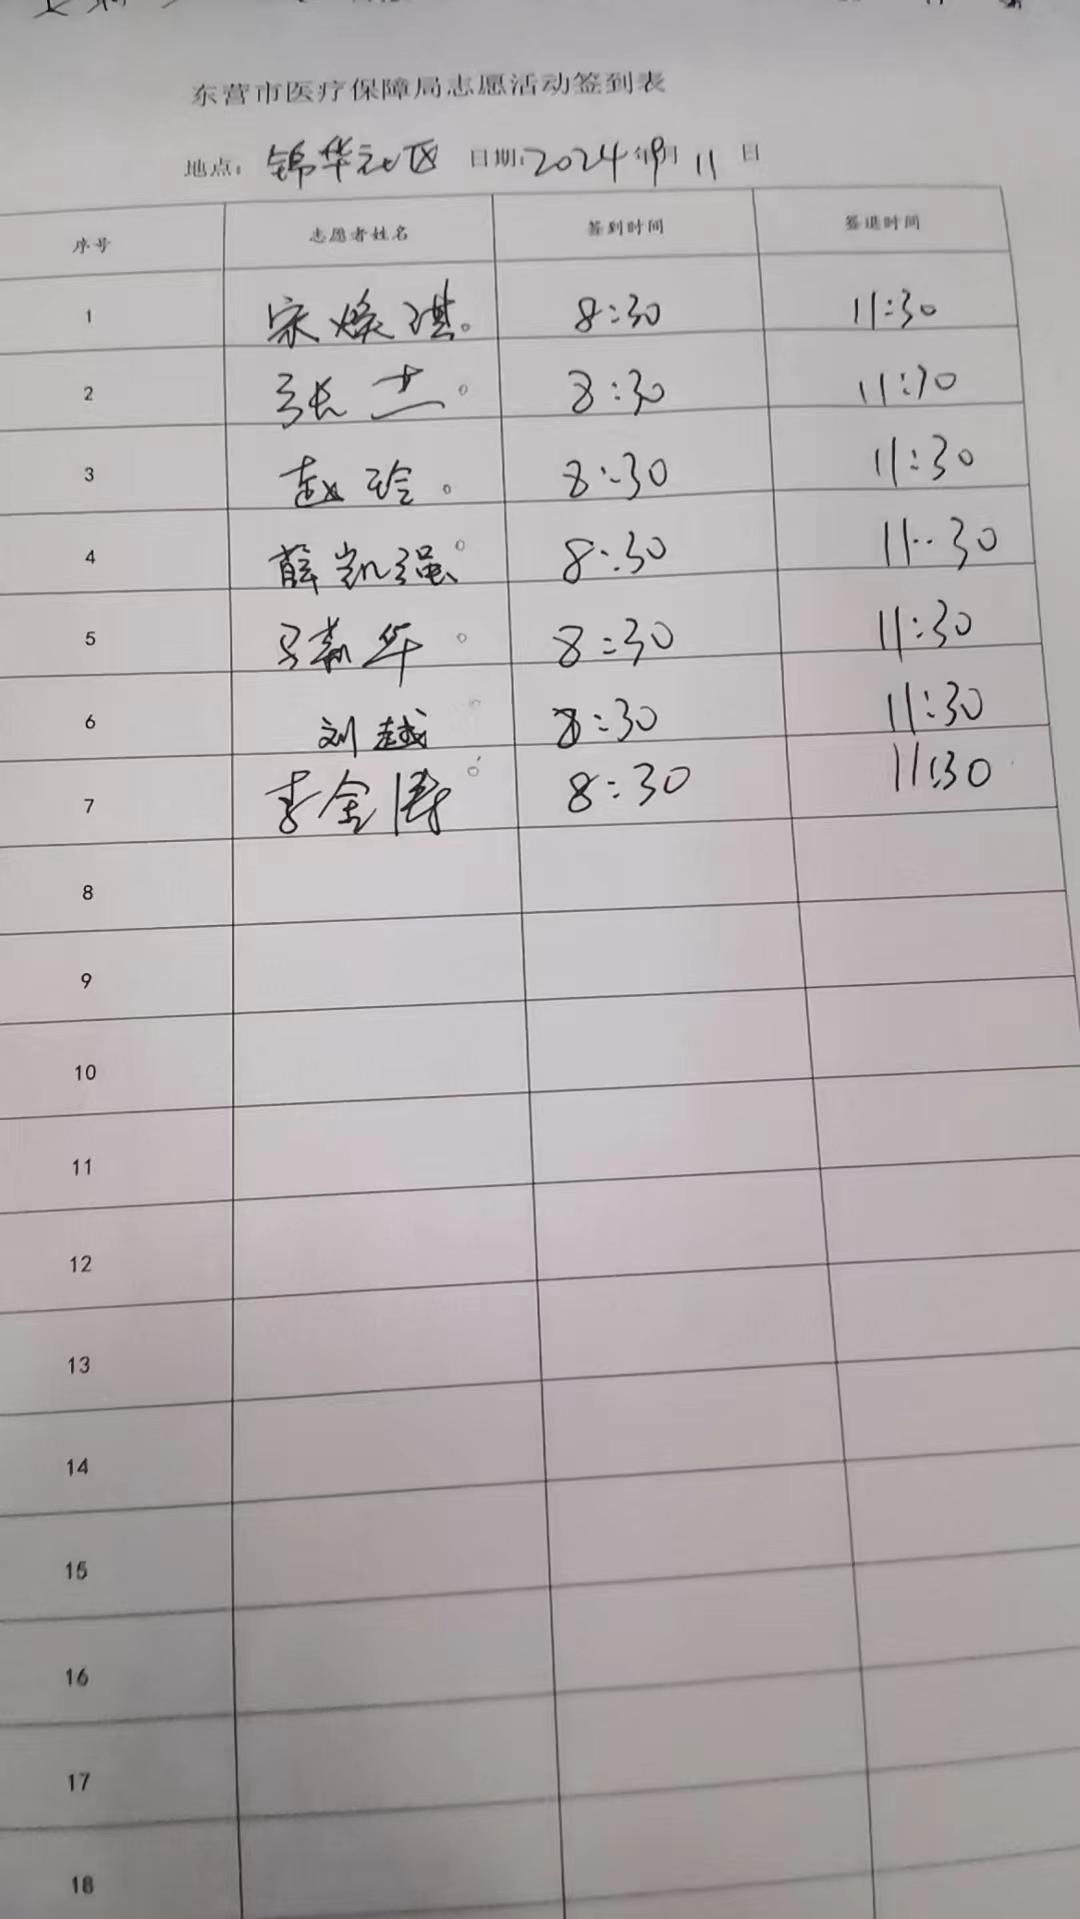 东营市医疗保障局志愿活动签到表
地点: 锦华社区 日期: 2024年9月11日
序号 志愿者姓名 签到时间 签退时间
1 宋焕琪 8:30 11:30
2 张 8:30 11:30
3 赵玲 8:30 11:30
4 薛凯强 8:30 11:30
5 马嘉华 8:30 11:30
6 刘越 8:30 11:30
7 李金涛 8:30 11:30
8
9
10
11
12
13
14
15
16
17
18